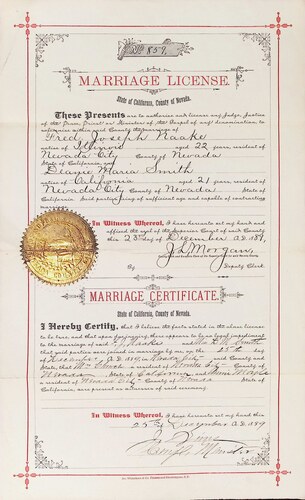 No 857
MARRIAGE LICENSE.
State of California, County of Nevada.
These Presents are to authorize and license any Judge, Justice
of the Peace, Priest or Minister of the Gospel of any denomination, to
solemnize within said County the marriage of
Fred Joseph Naake
native of Illinois aged 22 years, resident of
Nevada City County of Nevada
State of California, and
Maria Smith
native of California aged 21 years, resident of
Nevada City County of Nevada
State of California. Said parties being of sufficient age and capable of contracting
marriage.
In Witness Whereof, I have hereunto set my hand and
affixed the seal of the Superior Court of said County
this 23d day of December A.D. 189
J. L. Morgan,
By Deputy Clerk.
MARRIAGE CERTIFICATE.
State of California, County of Nevada.
I Hereby Certify, that I believe the facts stated in the above license
to be true, and that upon inquiring there appears to be no legal impediment
to the marriage of said
that said parties were joined in marriage by me, on the 25 day
of December A.D. in Nevada City said County and
State; that
a resident of County of
Nevada State of California and
a resident of Nevada City County of Nevada State of
California, were present as witnesses of said ceremony.
In Witness Whereof, I have hereunto set my hand this
25th December A.D. 189